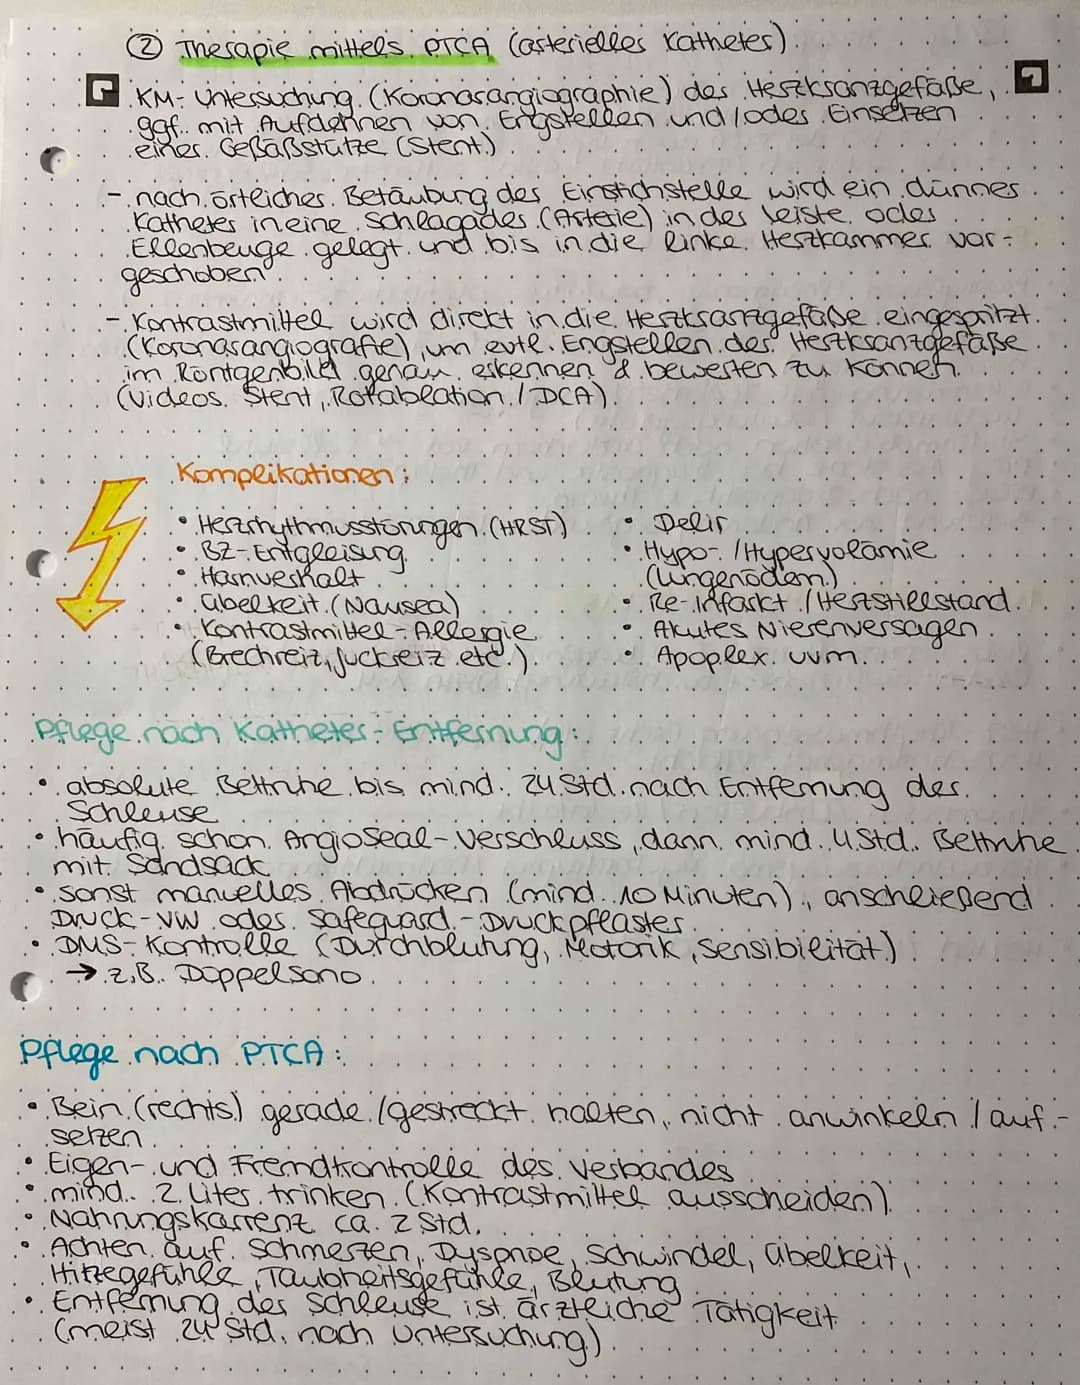 ② Therapie mittels PTCA (arterieller Katheter)
KM-Untersuchung (Koronarangiographie) der Herzkranzgefäße,
ggf. mit Aufdehnen von Engstellen und/oder Einsetzen
einer Gefäßstütze (Stent)
- nach örtlicher Betäubung der Einstichstelle wird ein dünner
Katheter in eine Schlagader (Arterie) in der Leiste oder
Ellenbeuge gelegt und bis in die linke Herzkammer vor-
geschoben
- Kontrastmittel wird direkt in die Herzkranzgefäße eingespritzt
(Koronarangiografie), um evtl. Engstellen der Herzkranzgefäße
im Röntgenbild genau erkennen & bewerten zu können
(Videos Stent, Rotablation / DCA)
Komplikationen:
• Herzrhythmusstörungen (HRST)
• BZ-Entgleisung
• Harnverhalt
• Übelkeit (Nausea)
• Kontrastmittel-Allergie
(Brechreiz, Juckreiz etc.)
• Delir
• Hypo- / Hypervolämie
(Lungenödem)
• Re-Infarkt / Herzstillstand
• Akutes Nierenversagen
• Apoplex uvm.
Pflege nach Katheter-Entfernung:
• absolute Bettruhe bis mind. 24 Std. nach Entfernung der
Schleuse
• häufig schon AngioSeal-Verschluss, dann mind. 4 Std. Bettruhe
mit Sandsack
• sonst manuelles Abdrücken (mind. 10 Minuten), anschließend
Druck-VW oder Safeguard-Druckpflaster
• DMS-Kontrolle (Durchblutung, Motorik, Sensibilität)
→ z.B. Doppelsono
Pflege nach PTCA:
• Bein (rechts) gerade/gestreckt halten, nicht anwinkeln / auf-
setzen
• Eigen- und Fremdkontrolle des Verbandes
• mind. 2 Liter trinken (Kontrastmittel ausscheiden)
• Nahrungskarrenz ca. 2 Std.
• Achten auf Schmerzen, Dyspnoe, Schwindel, Übelkeit,
Hitzegefühle, Taubheitsgefühle, Blutung
• Entfernung der Schleuse ist ärztliche Tätigkeit
(meist 24 Std. nach Untersuchung)